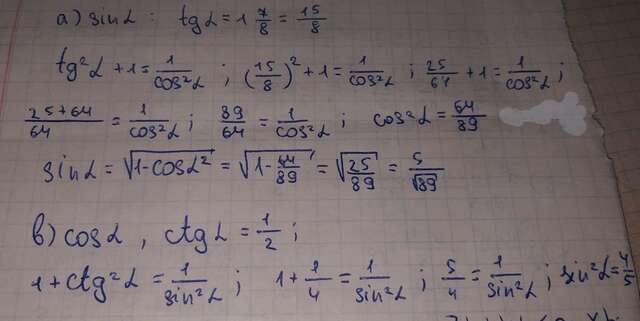 а) sinα: tgα = 1 7/8 = 15/8
tg²α + 1 = 1/cos²α ; (15/8)² + 1 = 1/cos²α ; 25/61 + 1 = 1/cos²α ;
25+64/64 = 1/cos²α ; 89/64 = 1/cos²α ; cos²α = 64/89
sinα = √1-cosα² = √1-64/89 = √25/89 = 5/√89
в) cosα , ctgα = 1/2 ;
1 + ctg²α = 1/sin²α ; 1 + 1/4 = 1/sin²α ; 5/4 = 1/sin²α ; sin²α = 4/5